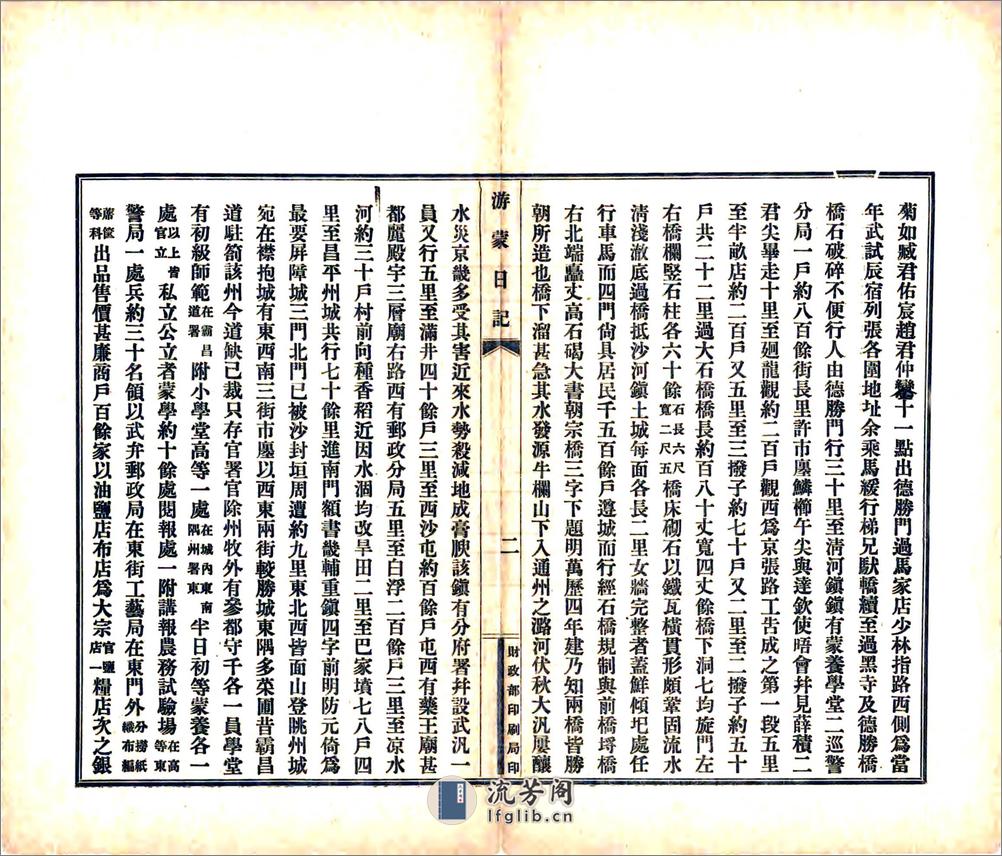 菊如臧君佑宸趙君仲鸞十一點出德勝門過馬家店少林指路西側爲當
年武試辰宿列張各圍地址余乘馬緩行梯兄馱轎續至過黑寺及德勝橋
橋石破碎不便行人由德勝門行三十里至淸河鎭鎭有蒙養學堂二巡警
分局一戶約八百餘街長里許市廛鱗櫛午尖與達欽使晤會幷見薛積二
君尖畢走十里至廻龍觀約二百戶觀西爲京張路工告成之第一段五里
至半畝店約二百戶又五里至三撥子約七十戶又二里至二撥子約五十
戶共二十二里過大石橋橋長約百八十丈寬四丈餘橋下洞七均旋門左
右橋欄豎石柱各六十餘石長六尺寬二尺五橋床砌石以鐵瓦橫貫形頗鞏固流水
淸淺澈底過橋抵沙河鎭土城每面各長二里女牆完整者蓋鮮傾圮處任
行車馬而四門尙具居民千五百餘戶遵城而行經石橋規制與前橋埒橋
右北端矗丈高石碣大書朝宗橋三字下題明萬歷四年建乃知兩橋皆勝
朝所造也橋下溜甚急其水發源牛欄山下入通州之潞河伏秋大汛屢釀
游蒙日記
二
財政部印刷局印
水災京畿多受其害近來水勢殺減地成膏腴該鎭有分府署幷設武汎一
員又行五里至滿井四十餘戶三里至西沙屯約百餘戶屯西有藥王廟甚
都麗殿宇三層廟右路西有郵政分局五里至白浮二百餘戶三里至凉水
河約三十戶村前向種香稻近因水涸均改旱田二里至巴家墳七八戶四
里至昌平州城共行七十餘里進南門額書畿輔重鎭四字前明防元倚爲
最要屏障城三門北門已被沙封垣周遭約九里東北西皆面山登眺州城
宛在襟抱城有東西南三街市廛以西東兩街較勝城東隅多菜圃昔霸昌
道駐箚該州今道缺已裁只存官署官除州牧外有參都守千各一員學堂
有初級師範在霸昌道署附小學堂高等一處在城內東南隅州署東半日初等蒙養各一
處以上皆官立私立公立者蒙學約十餘處閱報處一附講報農務試驗場在高等東
警局一處兵約三十名領以武弁郵政局在東街工藝局在東門外分撈紙織布編
蓆筐等科出品售價甚廉商戶百餘家以油鹽店布店爲大宗官鹽店一糧店次之銀
流芳阁
lfglib.cn